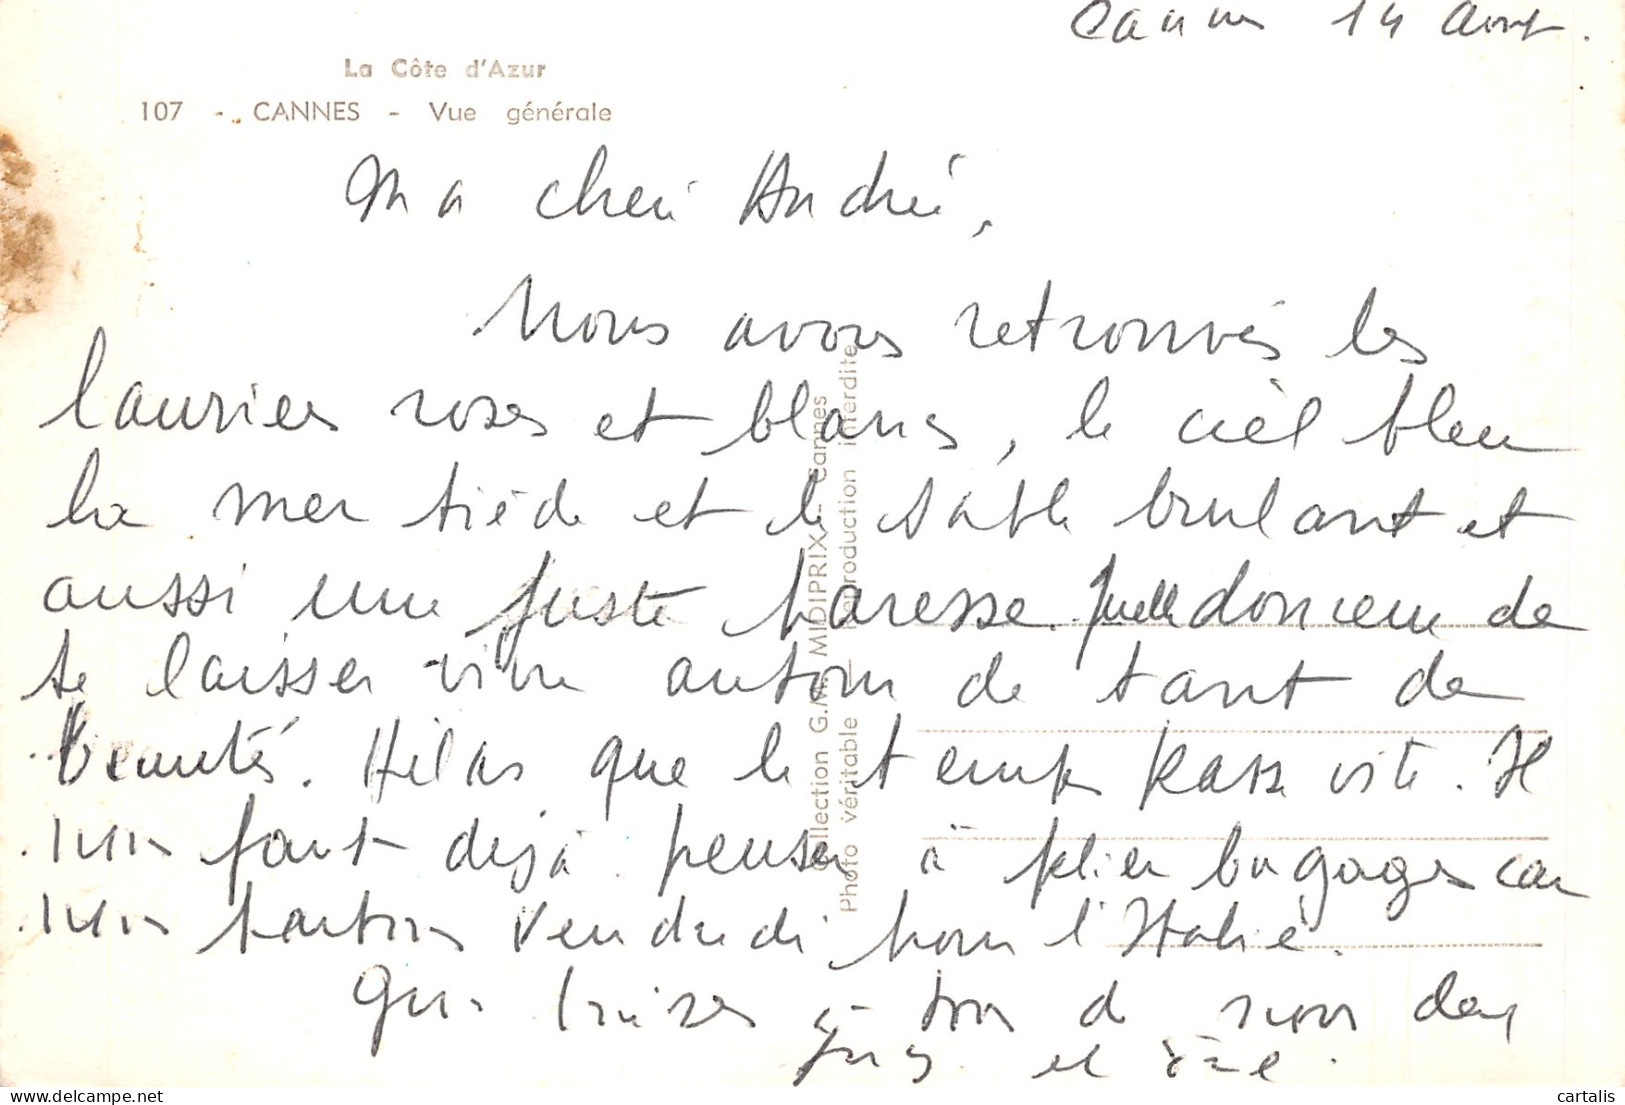 Cannes 14 Août.
La Côte d'Azur
107 - CANNES - Vue générale
Ma chère Andrée,
Nous avons retrouvés les
lauriers roses et blancs, le ciel bleu
la mer tiède et le sable brulant et
aussi une juste paresse. Quelle douceur de
se laisser vivre autour de tant de
beauté. Hélas que le temps passe vite. Il
nous faut déjà penser à plier bagages car
nous partons vendredi pour l'Italie.
Gros baisers à tous de nous deux
Guy et
Collection G.M. MIDIPRIX - Cannes
Photo véritable - Reproduction interdite
cartalis
delcampe.net